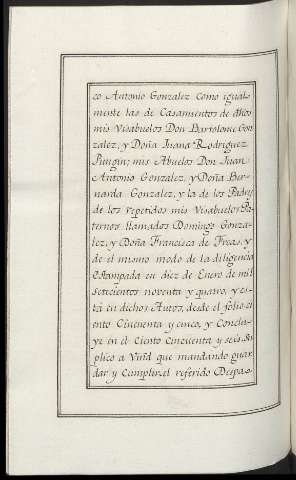 co Antonio Gonzalez como igual-
mente las de Casamientos de dhos
mis Visabuelos Don Bartolome Gon
zalez, y Doña Juana Rodriguez
Pungin; mis Abuelos Don Juan
Antonio Gonzalez, y Doña Ber-
narda Gonzalez, y la de los Padres
de los repetidos mis Visabuelos Pa-
ternos llamados Domingo Gonza-
lez, y Doña Francisca de Freas, y
de el mismo modo de la diligencia
estampada en diez de Enero de mil
setecientos noventa y quatro, y es-
tá en dichos Autos, desde el folio ci
ento Cincuenta y cinco, y Conclu-
ye en el Ciento Cincuenta y seis Su
plico a Vmd que mandando guar
dar y Cumplir el referido Despa-